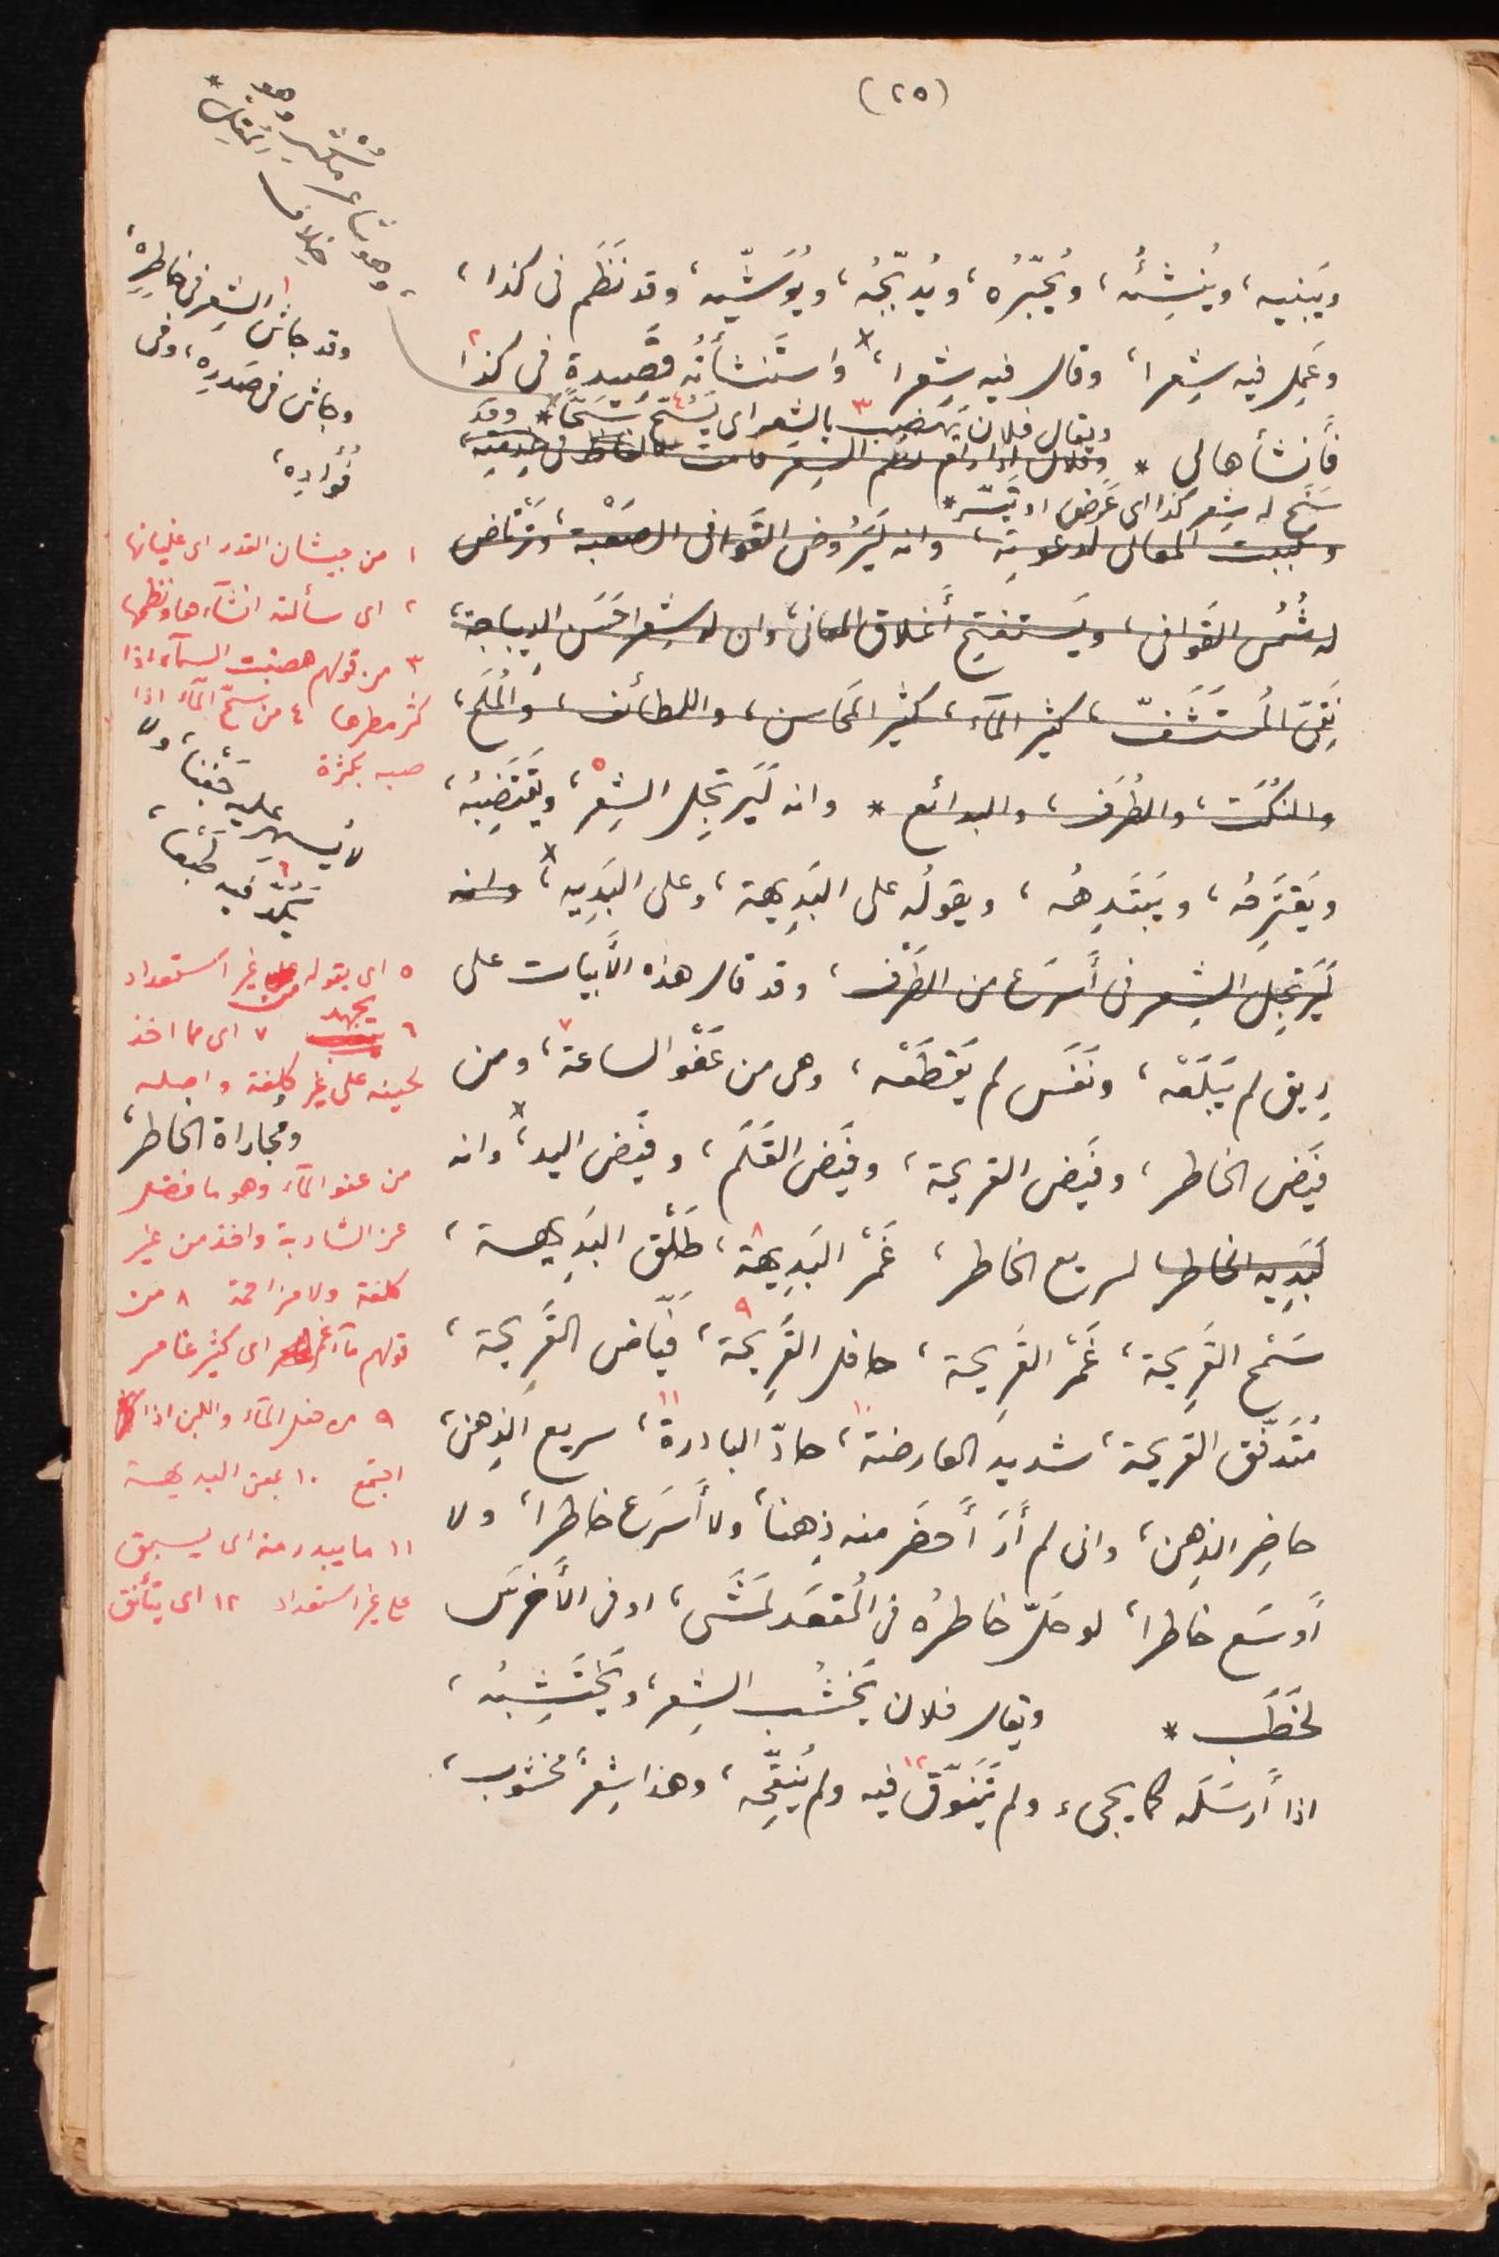 (٢٥)
ويَبنيه، ويُنشِئُه، ويُحَبِّرُه، ويُدبِّجُه، ويُوَشّيه، وقد نَظَم فى كذا،
وعَمِل فيه شِعرا، وقال فيه شِعرا، واستَنشأتُه قصيدة فى كذا ٢
فأنشأها لى *
ويقال فلان يَهضِب ٣ بالشعر اى يَسُحّ ٤ سَحًّا * وقد
سَنَح له شعر كذا اى عَرَض او تيَسّر *
وانه لَيَرُوض القَوافى الصَعْبة، وتَرتاض
له شُمُس القَوافى، ويَستفتِح أغلاق المعانى، وان له شِعرا حَسَن الديباجة،
نَقِىّ المُستَشَفّ، كثير المآء، كثير المَحاسن، واللطائف، والمُلَح،
والنُكَت، والطُرَف، والبدائع * وانه لَيَرتجِل الشِعر ٥، ويَقتضِبُه،
ويَقترِحُه، ويَبتَدِهُه، ويقولُه على البَدِيهة، وعلى البَدِيه، وانه
لَيَرتَجِل الشِعر فى أَسرَع من الطَرْف، وقد قال هذه الأبيات على
رِيق لم يَبلَعْه، ونَفَس لم يَقطَعْه، وهى من عَفْو الساعة ٧، ومن
فَيَض الخاطر، وفَيَض القريحة، وفَيَض القَلَم، وفَيَض اليد، وانه
لَبَدِيه الخاطر لسريع الخاطر، غَمْر البَدِيهة ٨، طَلْق البَدِيهة،
سَمْح القَرِيحة، غَمْر القَرِيحة، حافل القَرِيحة ٩، فَيّاض القَرِيحة،
مُتَدَفِّق القريحة، شديد العارضة ١٠، حادّ البادرة ١١، سريع الذِهن،
حاضِر الذِهن، وانى لم أَرَ أَحضَر منه ذِهنا، ولا أَسرَع خاطرا، ولا
أَوسَع خاطرا، لو حَلّ خاطرُه فى المُقعَد لمَشَى، او فى الأَخرَس
لخَطَب * ويقال فلان يَخشُب الشِعر، ويَختَشِبُه،
اذا أرسَلَه كما يجىء ولم يَتَنوَّق ١٢ فيه ولم يُنَقِّحه، وهذا شِعرٌ مخشوب،
وهو شاعر مُكثِر وهو
خِلاف المُقِلّ *
وقد جاش ١ الشِعر فى خاطِرِه،
وجاش فى صَدرِه، وفى
فُؤادِه،
١ من جيشان القدر اى غليانها
٢ اى سألته انشآءها ونظمها
٣ من قولهم هضبت السمآء اذا
كثر مطرها ٤ من سحّ المآء اذا
صبه بكثرة
لا يُسهِر عليه جَفنا، ولا
يَكُدّ ٦ فيه طَبعا،
٥ اى يقوله من غير استعداد
٦ يجهد ٧ اى مما اخذ
لحينه على غير كلفة واصله
ومُجاراة الخاطر،
من عفو المآء وهو ما فضل
عن الشاربة واخذ من غير
كلفة ولا مزاحمة ٨ من
قولهم مآء غمر اى كثير غامر
٩ من حفل المآء واللبن اذا
اجتمع ١٠ بمعنى البديهة
١١ ما يبدر منه اى يسبق
على غير استعداد ١٢ اى يتأنق